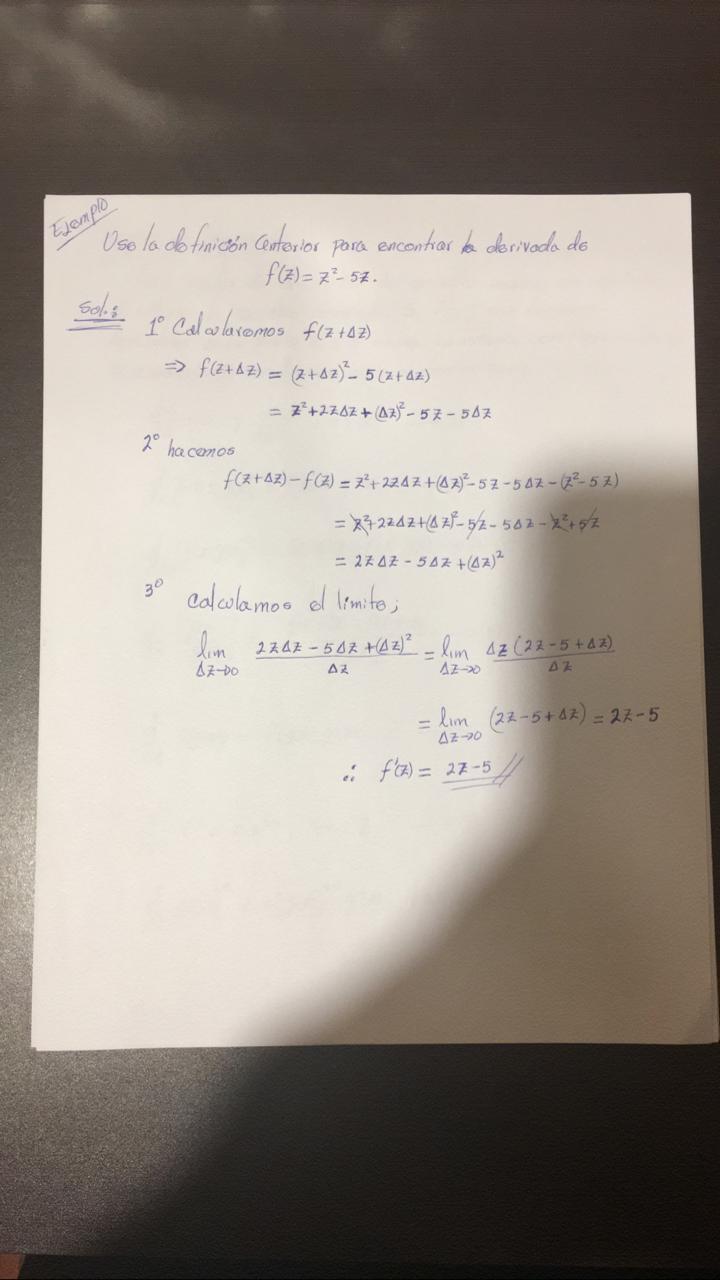 Ejemplo
Use la definición anterior para encontrar la derivada de
f(z) = z² - 5z.
Sol.:
1° Calcularemos f(z+Δz)
⇒ f(z+Δz) = (z+Δz)² - 5(z+Δz)
= z² + 2zΔz + (Δz)² - 5z - 5Δz
2° hacemos
f(z+Δz) - f(z) = z² + 2zΔz + (Δz)² - 5z - 5Δz - (z² - 5z)
= z² + 2zΔz + (Δz)² - 5z - 5Δz - z² + 5z
= 2zΔz - 5Δz + (Δz)²
3° calculamos el límite;
lim Δz→0 (2zΔz - 5Δz + (Δz)²)/Δz = lim Δz→0 Δz(2z - 5 + Δz)/Δz
= lim Δz→0 (2z - 5 + Δz) = 2z - 5
∴ f'(z) = 2z - 5 //